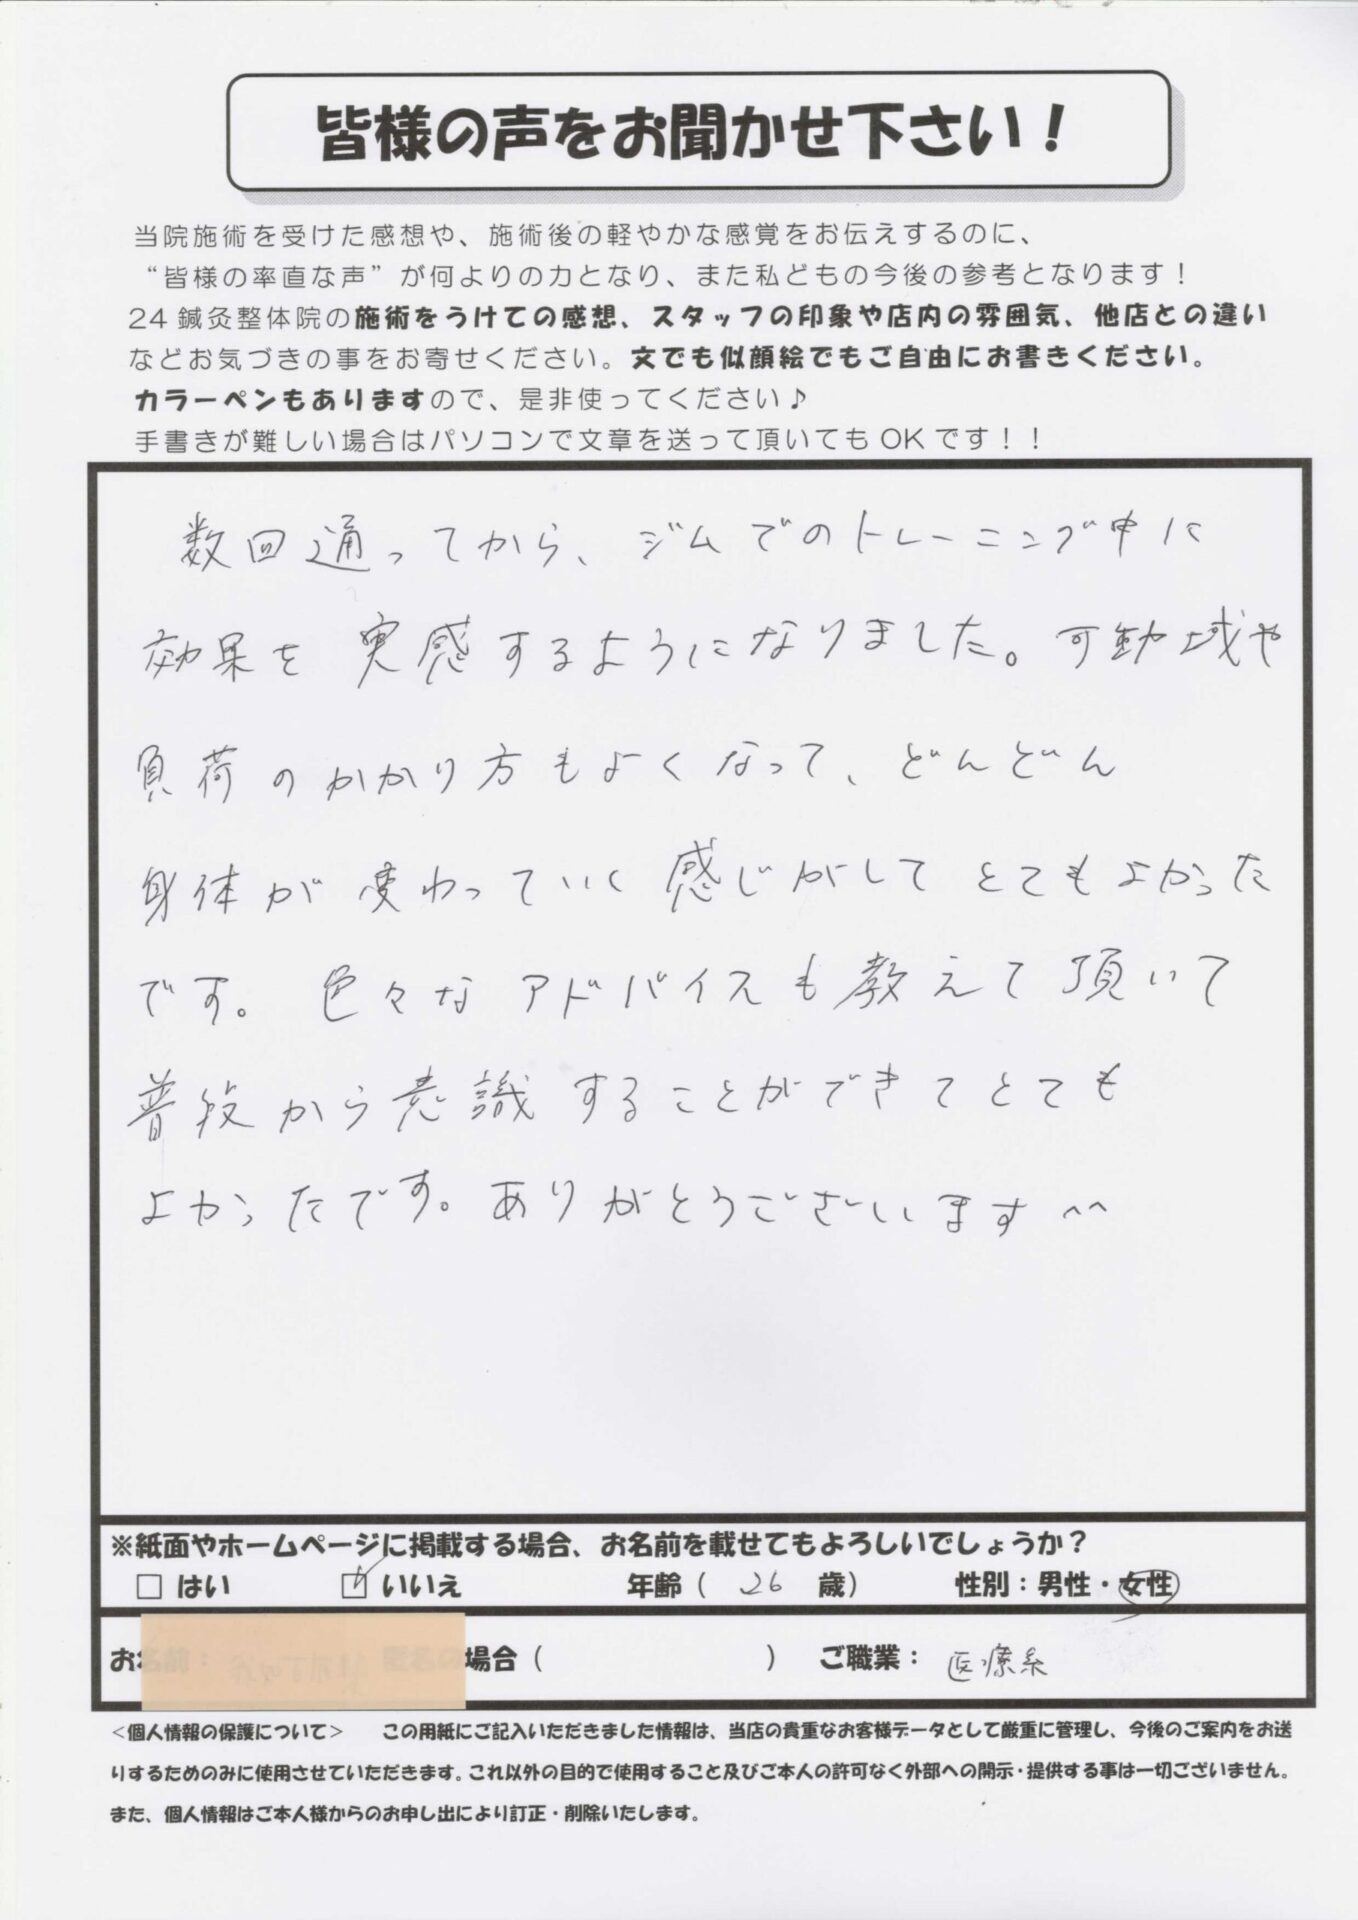 皆様の声をお聞かせ下さい！
当院施術を受けた感想や、施術後の軽やかな感覚をお伝えするのに、
“皆様の率直な声”が何よりの力となり、また私どもの今後の参考となります！
24鍼灸整体院の施術をうけての感想、スタッフの印象や店内の雰囲気、他店との違い
などお気づきの事をお寄せください。文でも似顔絵でもご自由にお書きください。
カラーペンもありますので、是非使ってください♪
手書きが難しい場合はパソコンで文章を送って頂いてもOKです！！
数回通ってから、ジムでのトレーニング中に
効果を実感するようになりました。可動域や
負荷のかかり方もよくなって、どんどん
身体が変わっていく感じがしてとてもよかった
です。色々なアドバイスも教えて頂いて
普段から意識することができてとても
よかったです。ありがとうございます^^
※紙面やホームページに掲載する場合、お名前を載せてもよろしいでしょうか？
□ はい ☑ いいえ 年齢（ 26 歳） 性別：男性・女性
お名前： 匿名の場合（ ） ご職業： 医療系
＜個人情報の保護について＞ この用紙にご記入いただきました情報は、当店の貴重なお客様データとして厳重に管理し、今後のご案内をお送
りするためのみに使用させていただきます。これ以外の目的で使用すること及びご本人の許可なく外部への開示・提供する事は一切ございません。
また、個人情報はご本人様からのお申し出により訂正・削除いたします。